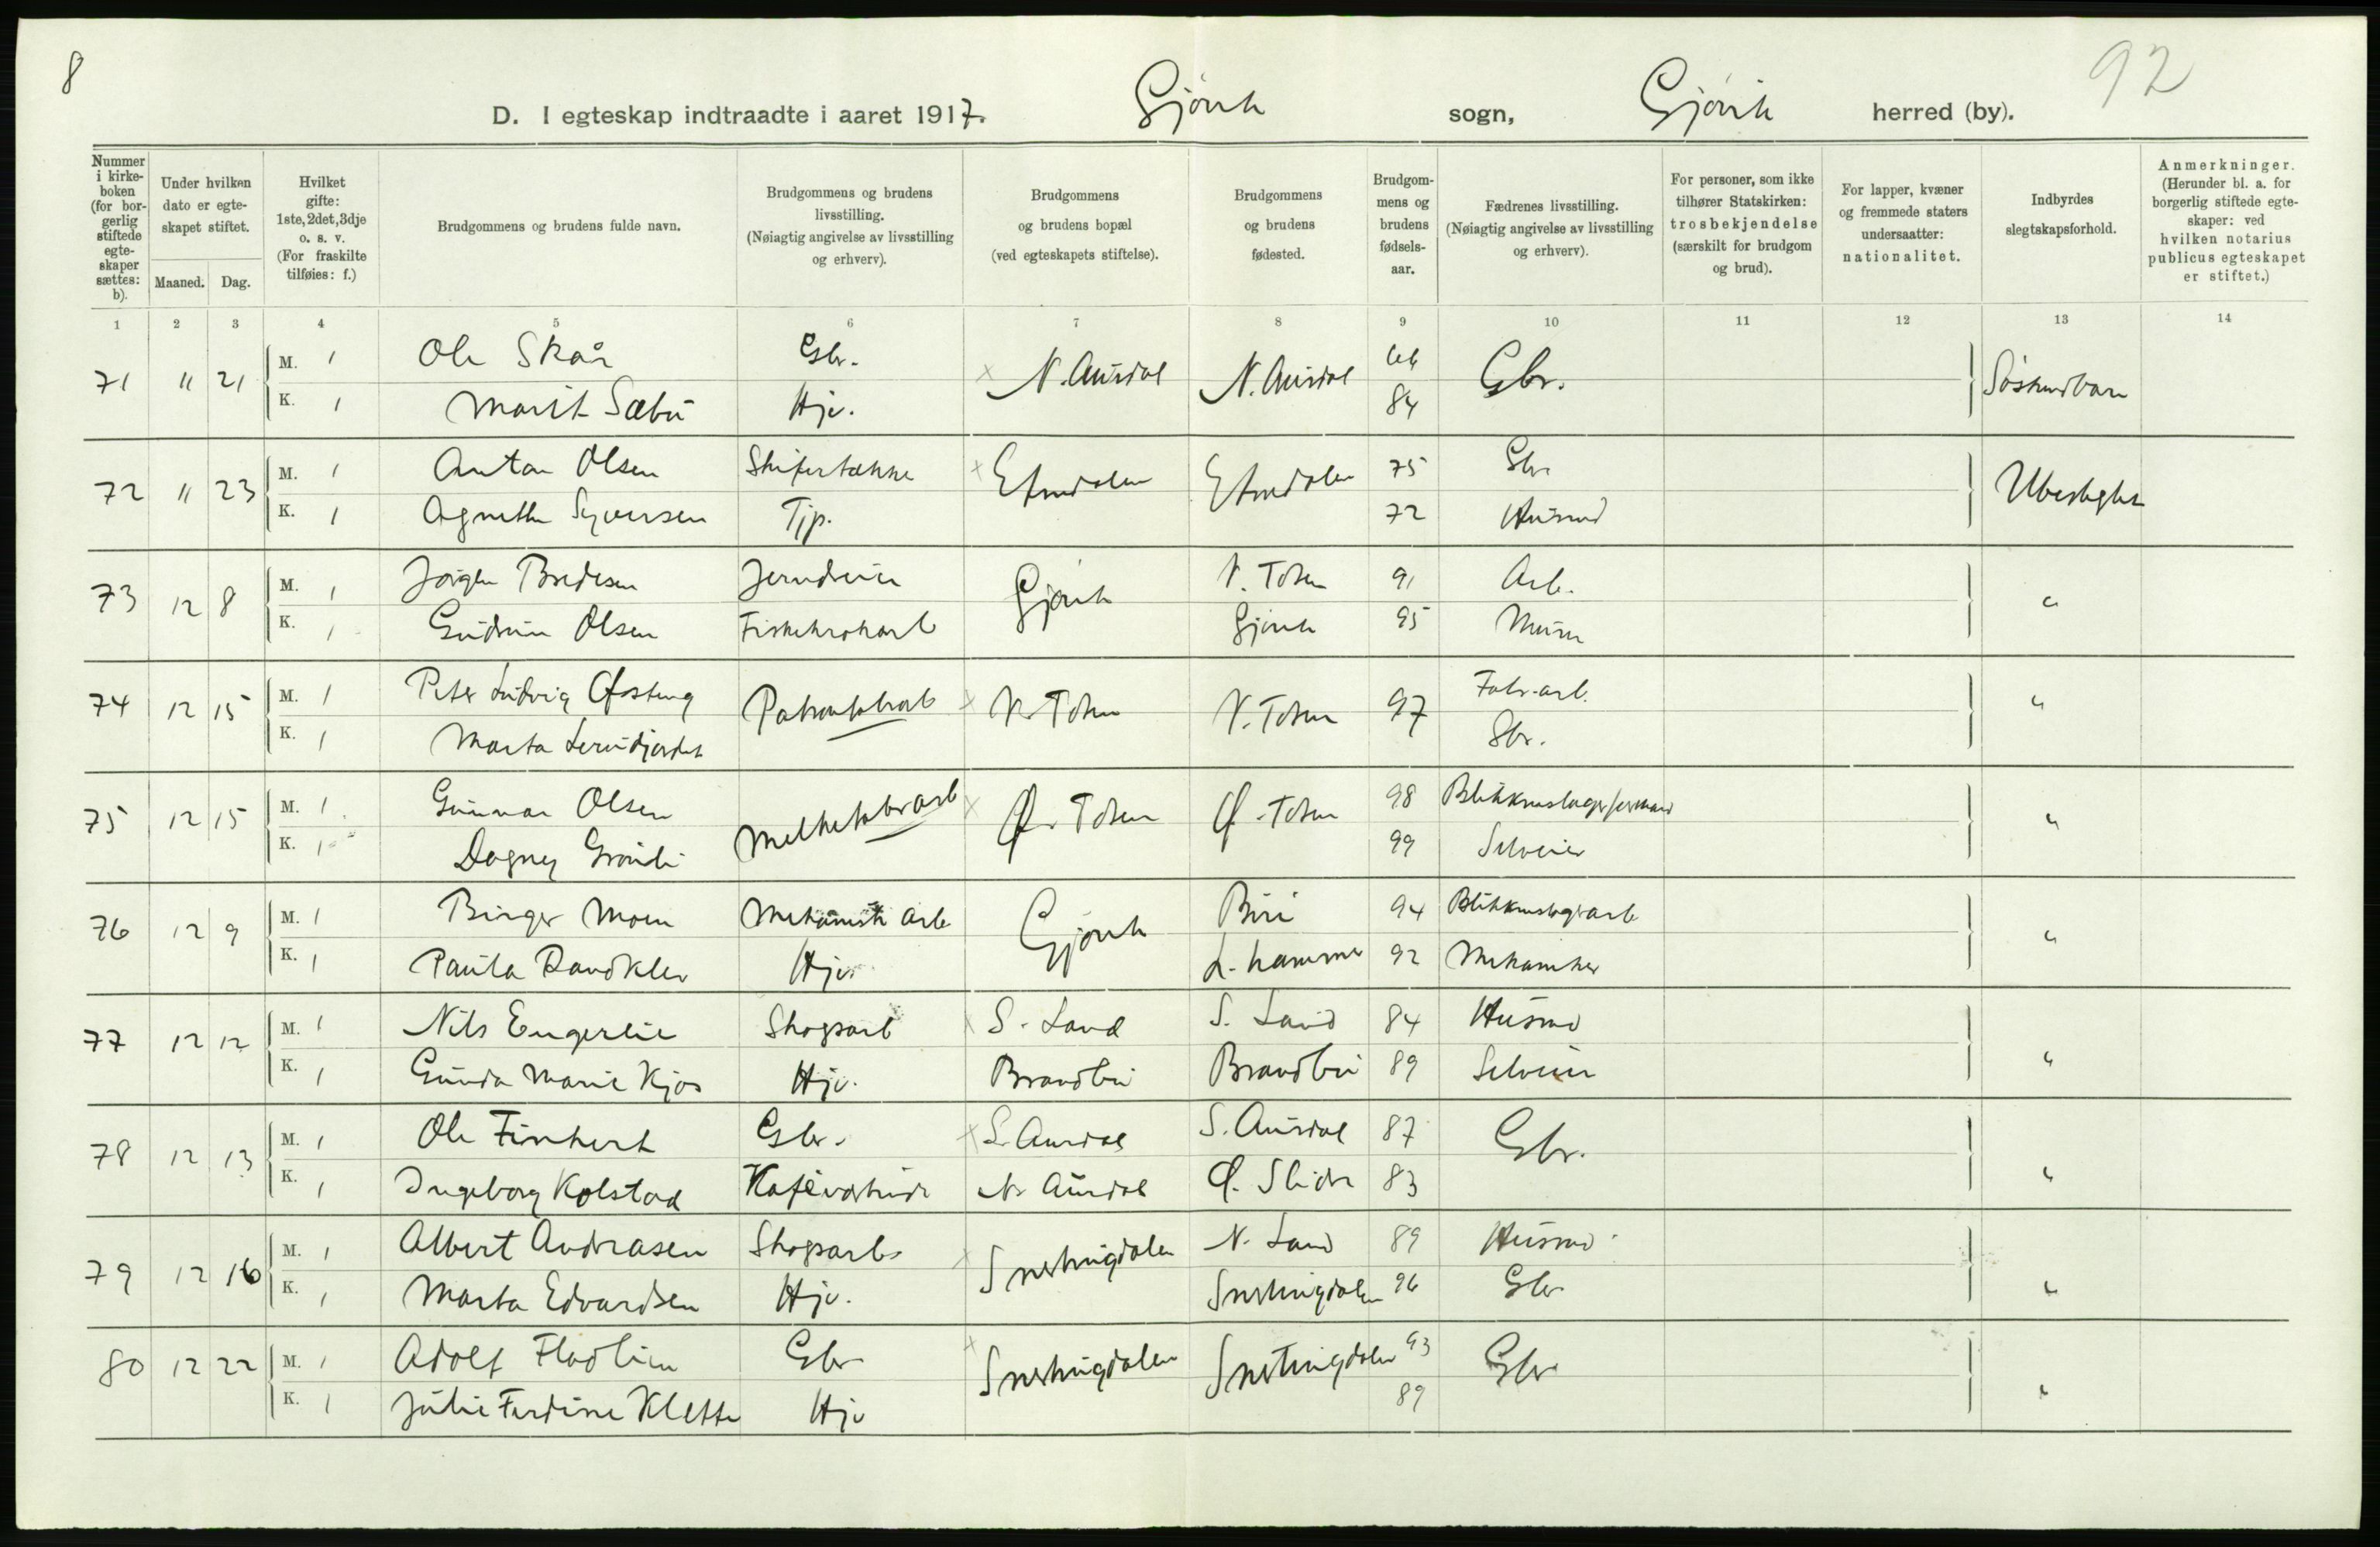 8
92
D. I egteskap indtraadte i aaret 1917. Gjøvik sogn, Gjøvik herred (by).
Nummer i kirkeboken (for borgerlig stiftede egteskaper sættes: b).
Under hvilken dato er egteskapet stiftet.
Maaned. Dag.
Hvilket gifte: 1ste, 2det, 3dje o. s. v. (For fraskilte tilføies: f.)
Brudgommens og brudens fulde navn.
Brudgommens og brudens livsstilling. (Nøiagtig angivelse av livsstilling og erhverv).
Brudgommens og brudens bopæl (ved egteskapets stiftelse).
Brudgommens og brudens fødested.
Brudgommens og brudens fødselsaar.
Fædrenes livsstilling. (Nøiagtig angivelse av livsstilling og erhverv).
For personer, som ikke tilhører Statskirken: trosbekjendelse (særskilt for brudgom og brud).
For lapper, kvæner og fremmede staters undersaatter: nationalitet.
Indbyrdes slegtskapsforhold.
Anmerkninger. (Herunder bl. a. for borgerlig stiftede egteskaper: ved hvilken notarius publicus egteskapet er stiftet.)
1 2 3 4 5 6 7 8 9 10 11 12 13 14
71 11 21 M. 1 Ole Skår Gbr. N. Aurdal N. Aurdal Gbr. Søskendbarn
K. 1 Marit Sæbu Hjv. 84
72 11 23 M. 1 Anton Olsen Skifertække Etnedalen Etnedalen 75 Gbr Ubeslegtet
K. 1 Agnethe Syversen Tjp. 72 Husmd
73 12 8 M. 1 Jørgen Bredesen Jerndreier Gjøvik V. Toten 91 Arb. "
K. 1 Gudrun Olsen Fiskekrokarb Gjøvik 95 Murer
74 12 15 M. 1 Peter Ludvig Østeng Patronfabrarb V. Toten V. Toten 97 Fabr.arb. "
K. 1 Marta Gbr.
75 12 15 M. 1 Gunnar Olsen Melkefabrarb Ø. Toten Ø. Toten 98 "
K. 1 Dagny Grønli 99 Selveier
76 12 9 M. 1 Birger Moen Mekanisk arb Gjøvik Biri 94 "
K. 1 Paula Randklev Hjv. L.hammer 92 Mekaniker
77 12 12 M. 1 Nils Engerlie Skogsarb S. Land S. Land 84 Husmd "
K. 1 Gunda Marie Kjos Hjv. Brandbu Brandbu 89 Selveier
78 12 13 M. 1 Ole Gbr. S. Aurdal S. Aurdal 87 Gbr. "
K. 1 Ingeborg Kolstad Kafevertinde N. Aurdal Ø. Slidre 83
79 12 16 M. 1 Albert Andreasen Skogsarb. Snertingdalen N. Land 89 Husmd "
K. 1 Marta Edvardsen Hjv. Snertingdalen 96 Gbr
80 12 22 M. 1 Adolf Fladlien Gbr Snertingdalen Snertingdalen 93 Gbr "
K. 1 Julie Ferdine Klette Hjv 89